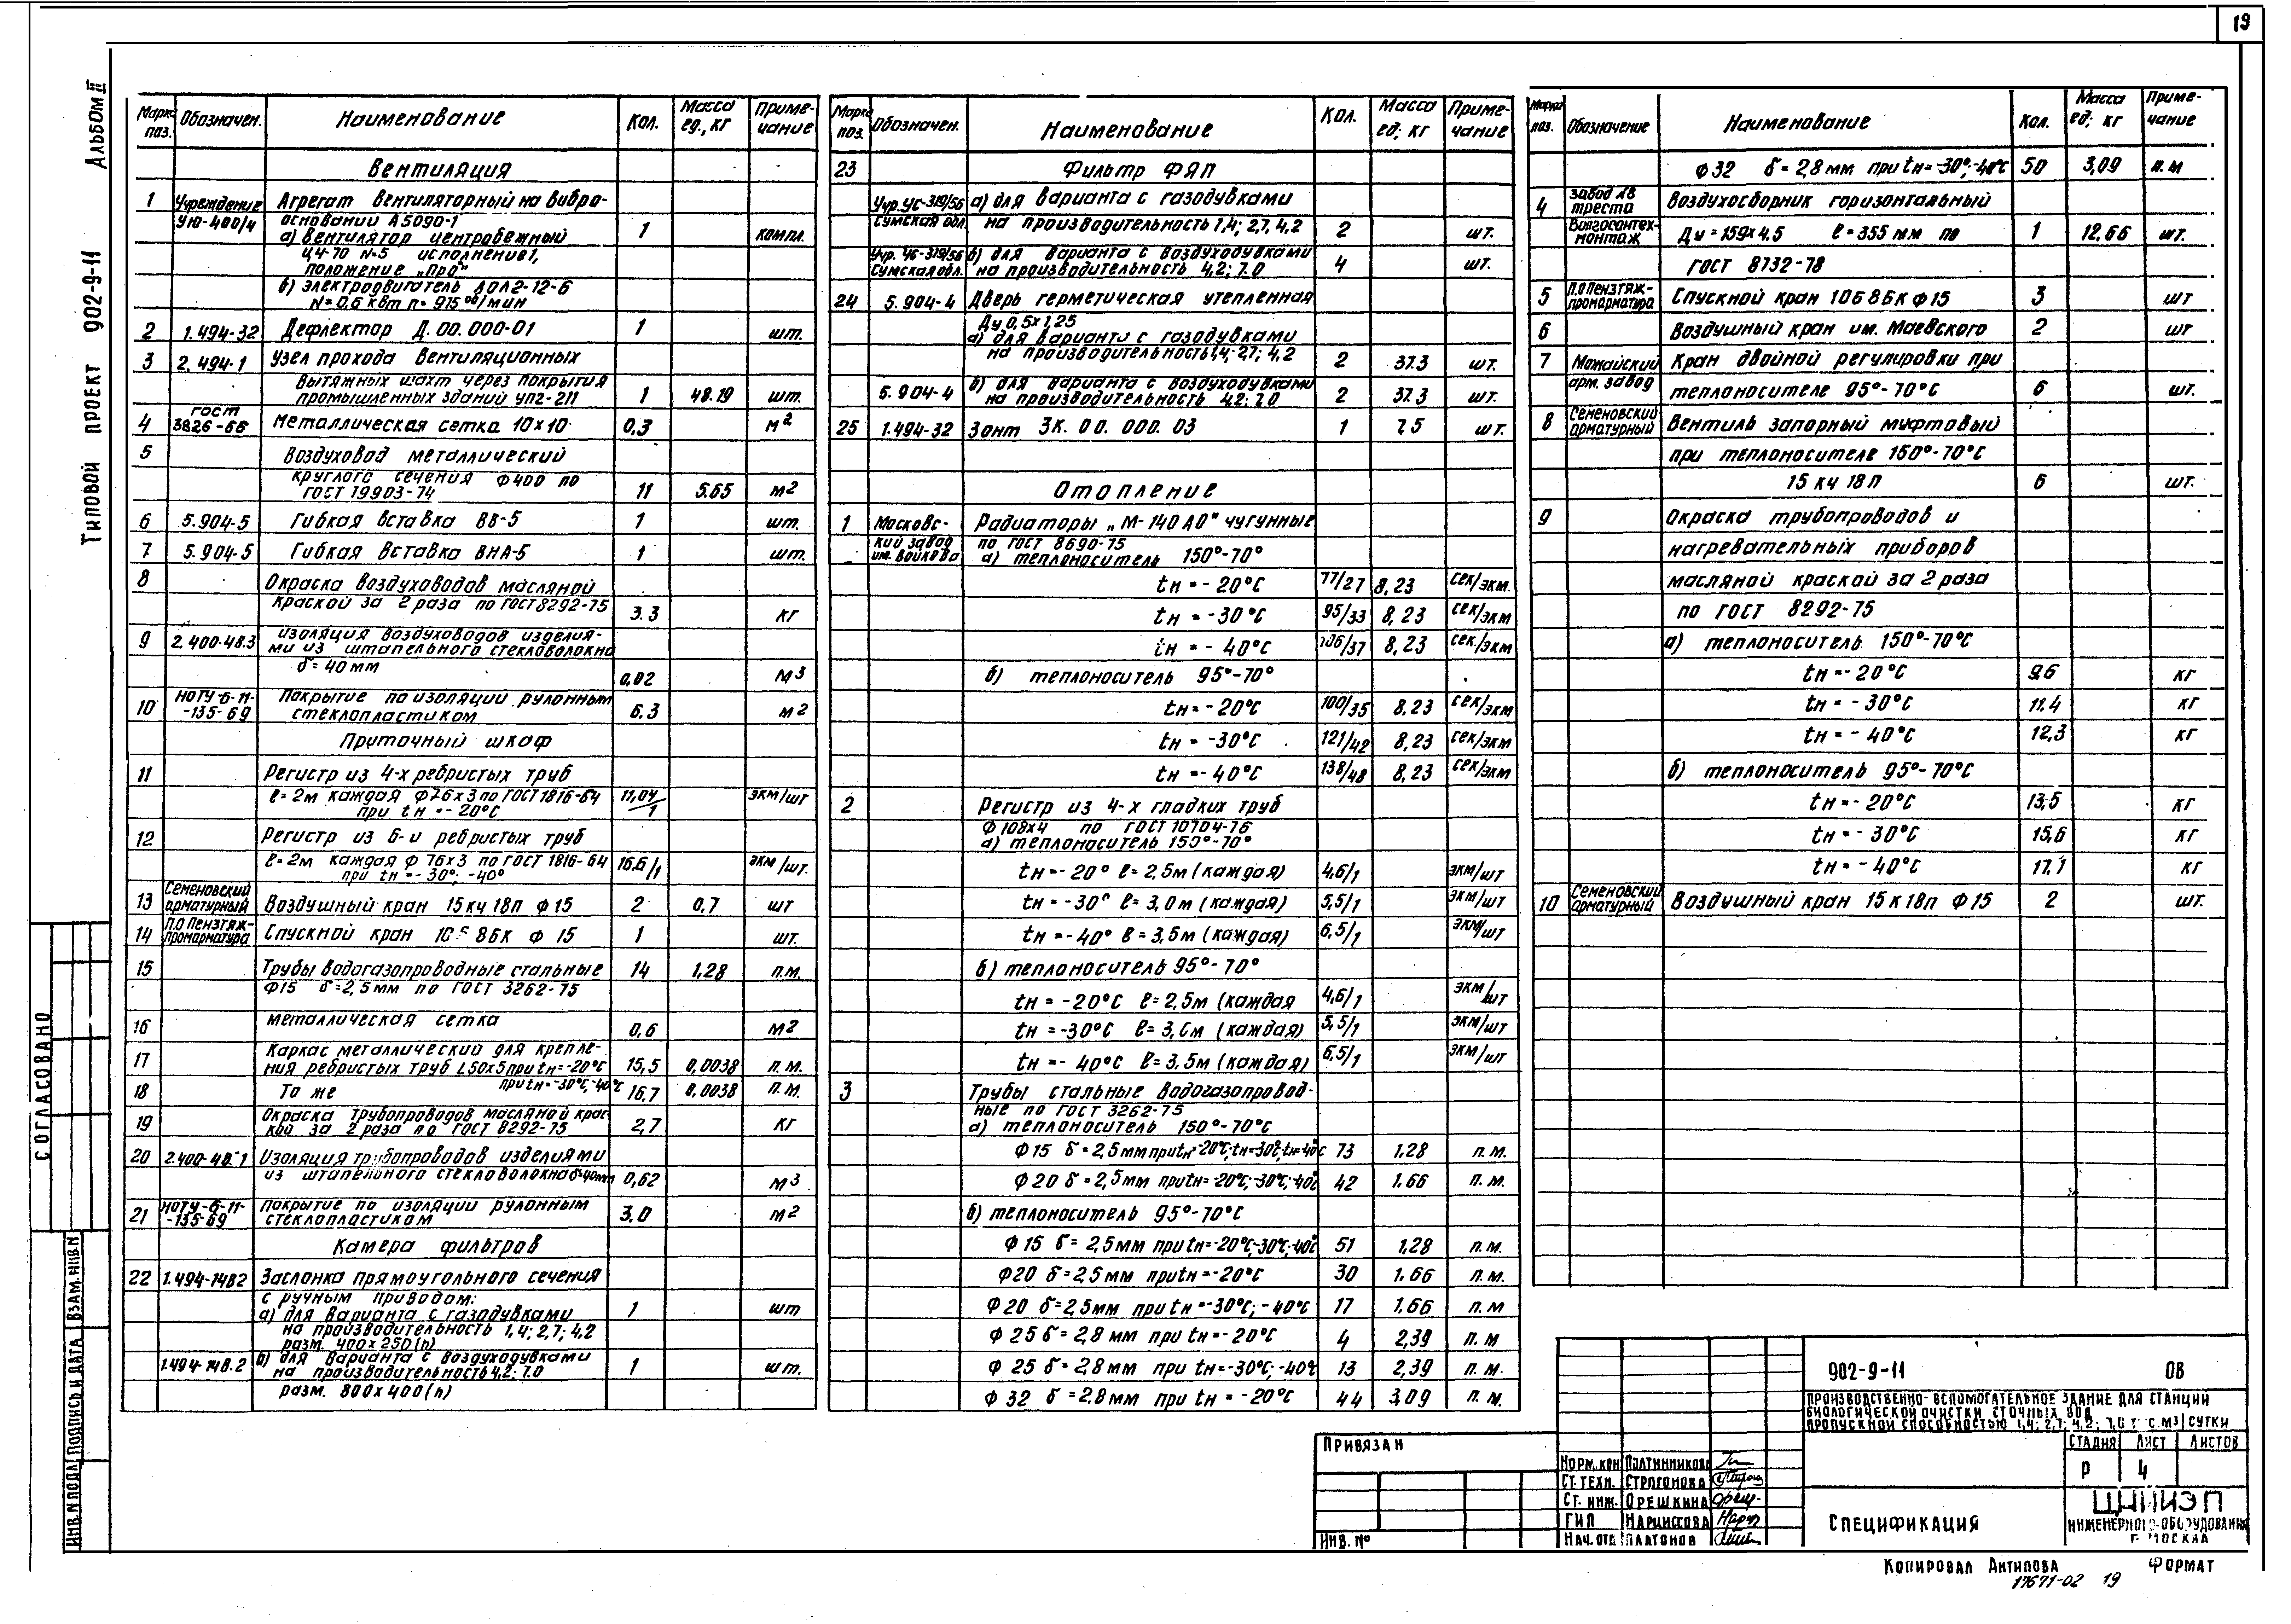 19
Альбом II
Типовой проект 902-9-11
Марка поз. Обозначен. Наименование Кол. Масса ед., кг Приме-чание
Вентиляция
1 Учреждение Агрегат вентиляторный на вибро-
УЮ-400/4 основании А5090-1
а) Вентилятор центробежный 1 компл.
Ц4-70 №5 исполнение 1,
положение „Пр0"
б) Электродвигатель АОЛ2-12-6
N=0,6 квт n=915 об/мин
2 1.494-32 Дефлектор Д.00.000-01 1 шт.
3 2.494-1 Узел прохода вентиляционных
вытяжных шахт через покрытия
промышленных зданий УП2-211 1 48.19 шт.
4 ГОСТ 3826-66 Металлическая сетка 10×10 0,3 м2
5 Воздуховод металлический
круглого сечения Ф400 по
ГОСТ 19903-74 11 5.65 м2
6 5.904-5 Гибкая вставка ВВ-5 1 шт.
7 5.904-5 Гибкая вставка ВНА-5 1 шт.
8 Окраска воздуховодов масляной
краской за 2 раза по ГОСТ 8292-75 3.3 кг
9 2.400-48.3 Изоляция воздуховодов изделия-
ми из штапельного стекловолокна
δ=40мм 0,02 м3
10 НОТУ-6-11- Покрытие по изоляции рулонным
-135-69 стеклопластиком 6.3 м2
Приточный шкаф
11 Регистр из 4-х ребристых труб
ℓ=2м каждая Ф76×3 по ГОСТ 1816-64 11,04/1 экм/шт
при tн=-20°С
12 Регистр из 6-и ребристых труб
ℓ=2м каждая Ф 76×3 по ГОСТ 1816-64 16.6/1 экм/шт.
при tн=-30°; -40°
13 Семеновский арматурный Воздушный кран 15кч 18п Ф15 2 0,7 шт
14 П.О Пензтяж-промарматура Спускной кран 10Б 8бк Ф 15 1 шт.
15 Трубы водогазопроводные стальные 14 1,28 п.м.
Ф15 δ=2,5мм по ГОСТ 3262-75
16 Металлическая сетка 0,6 м2
17 Каркас металлический для крепле-
ния ребристых труб L50×5 при tн=-20°С 15,5 0,0038 п.м.
18 То же при tн=-30°С; -40°С 16,7 0,0038 п.м.
19 Окраска трубопроводов масляной крас
кой за 2 раза по ГОСТ 8292-75 2,7 кг
20 2.400-48.1 Изоляция трубопроводов изделиями
из штапельного стекловолокна δ=40мм 0,62 м3
21 НОТУ-6-11- Покрытие по изоляции рулонным
-135-69 стеклопластиком 3,0 м2
Камера фильтров
22 1.494-1482 Заслонка прямоугольного сечения
с ручным приводом:
а) для варианта с газодувками 1 шт
на производительность 1,4; 2,7; 4,2
разм. 400×250(h)
1.494-148.2 б) для варианта с воздуходувками 1 шт.
на производительность 4,2; 7.0
разм. 800×400(h)
Марка поз. Обозначен. Наименование Кол. Масса ед; кг Приме-чание
23 Фильтр ФЯП
Учр. УС-319/56 а) для варианта с газодувками
Сумская обл. на производительность 1,4; 2,7, 4,2 2 шт.
Учр. УС-319/56 б) для варианта с воздуходувками
Сумская обл. на производительность 4,2; 7.0 4 шт.
24 5.904-4 Дверь герметическая утепленная
Ду 0,5×1,25
а) для варианта с газодувками
на производительность 1,4; 2,7; 4,2 2 37.3 шт.
5.904-4 б) для варианта с воздуходувками
на производительность 4,2; 7.0 2 37.3 шт.
25 1.494-32 Зонт ЗК. 00. 000. 03 1 7,5 шт.
Отопление
1 Московс- Радиаторы „М-140 АО" чугунные
кий завод по ГОСТ 8690-75
им. Войкова а) теплоноситель 150°-70°
tн=-20°С 77/27 8,23 сек/экм.
tн=-30°С 95/33 8,23 сек/экм
tн=-40°С 106/37 8,23 сек/экм
б) теплоноситель 95°-70°
tн=-20°С 100/35 8,23 сек/экм
tн=-30°С 121/42 8,23 сек/экм
tн=-40°С 138/48 8,23 сек/экм
2 Регистр из 4-х гладких труб
Ф 108×4 по ГОСТ 10704-76
а) теплоноситель 150°-70°
tн=-20° ℓ=2,5м (каждая) 4,6/1 экм/шт
tн=-30° ℓ=3,0м (каждая) 5,5/1 экм/шт
tн=-40° ℓ=3,5м (каждая) 6,5/1 экм/шт
б) теплоноситель 95°-70°
tн=-20°С ℓ=2,5м (каждая 4,6/1 экм/шт
tн=-30°С ℓ=3,0м (каждая) 5,5/1 экм/шт
tн=-40°С ℓ=3,5м (каждая) 6,5/1 экм/шт
3 Трубы стальные водогазопровод-
ные по ГОСТ 3262-75
а) теплоноситель 150°-70°С
Ф15 δ=2,5мм при tн=-20°С; tн=-30°С; tн=-40°С 73 1,28 п.м.
Ф20 δ=2,5мм при tн=-20°С; -30°С; -40°С 42 1.66 п.м.
б) теплоноситель 95°-70°С
Ф 15 δ=2,5мм при tн=-20°С; -30°С; -40°С 51 1,28 п.м.
Ф20 δ=2,5мм при tн=-20°С 30 1.66 п.м.
Ф20 δ=2,5мм при tн=-30°С; -40°С 17 1,66 п.м
Ф 25 δ=2,8мм при tн=-20°С 4 2,39 п.м
Ф 25 δ=2,8мм при tн=-30°С; -40°С 13 2,39 п.м.
Ф 32 δ=2,8мм при tн=-20°С 44 3,09 п.м.
Марка поз. Обозначение Наименование Кол. Масса ед; кг Приме-чание
Ф32 δ=2,8мм при tн=-30°; -40°С 50 3,09 п.м
4 Завод №8 треста Воздухосборник горизонтальный
Волгосантех-монтаж Ду=159×4,5 ℓ=355мм по 1 12,66 шт.
ГОСТ 8732-78
5 П.О Пензтяж-промарматура Спускной кран 10Б 8бк Ф15 3 шт
6 Воздушный кран им. Маевского 2 шт
7 Можайский Кран двойной регулировки при
арм. завод теплоносителе 95°-70°С 6 шт.
8 Семеновский арматурный Вентиль запорный муфтовый
при теплоносителе 150°-70°С
15 кч 18п 6 шт.
9 Окраска трубопроводов и
нагревательных приборов
масляной краской за 2 раза
по ГОСТ 8292-75
а) теплоноситель 150°-70°С
tн=-20°С 9,6 кг
tн=-30°С 11.4 кг
tн=-40°С 12,3 кг
б) теплоноситель 95°-70°С
tн=-20°С 13,5 кг
tн=-30°С 15,6 кг
tн=-40°С 17,1 кг
10 Семеновский арматурный Воздушный кран 15 к 18п Ф 15 2 шт.
СОГЛАСОВАНО
ИНВ.N ПОДЛ ПОДПИСЬ И ДАТА ВЗАМ. ИНВ.N
ПРИВЯЗАН
ИНВ. №
902-9-11 ОВ
ПРОИЗВОДСТВЕННО-ВСПОМОГАТЕЛЬНОЕ ЗДАНИЕ ДЛЯ СТАНЦИИ
БИОЛОГИЧЕСКОЙ ОЧИСТКИ СТОЧНЫХ ВОД
ПРОПУСКНОЙ СПОСОБНОСТЬЮ 1,4; 2,7; 4,2; 7,0 тыс.м3/сутки
СТАДИЯ ЛИСТ ЛИСТОВ
Р 4
НОРМ.КОН ПЛАТИННИКОВА
СТ.ТЕХН. СТРОГОНОВА
СТ. ИНЖ. ОРЕШКИНА
ГИП НАРЦИССОВА
НАЧ.ОТД ПЛАТОНОВ
СПЕЦИФИКАЦИЯ
ЦНИИЭП
ИНЖЕНЕРНОГО ОБОРУДОВАНИЯ
Г. МОСКВА
КОПИРОВАЛ АНТИПОВА ФОРМАТ
17671-02 19